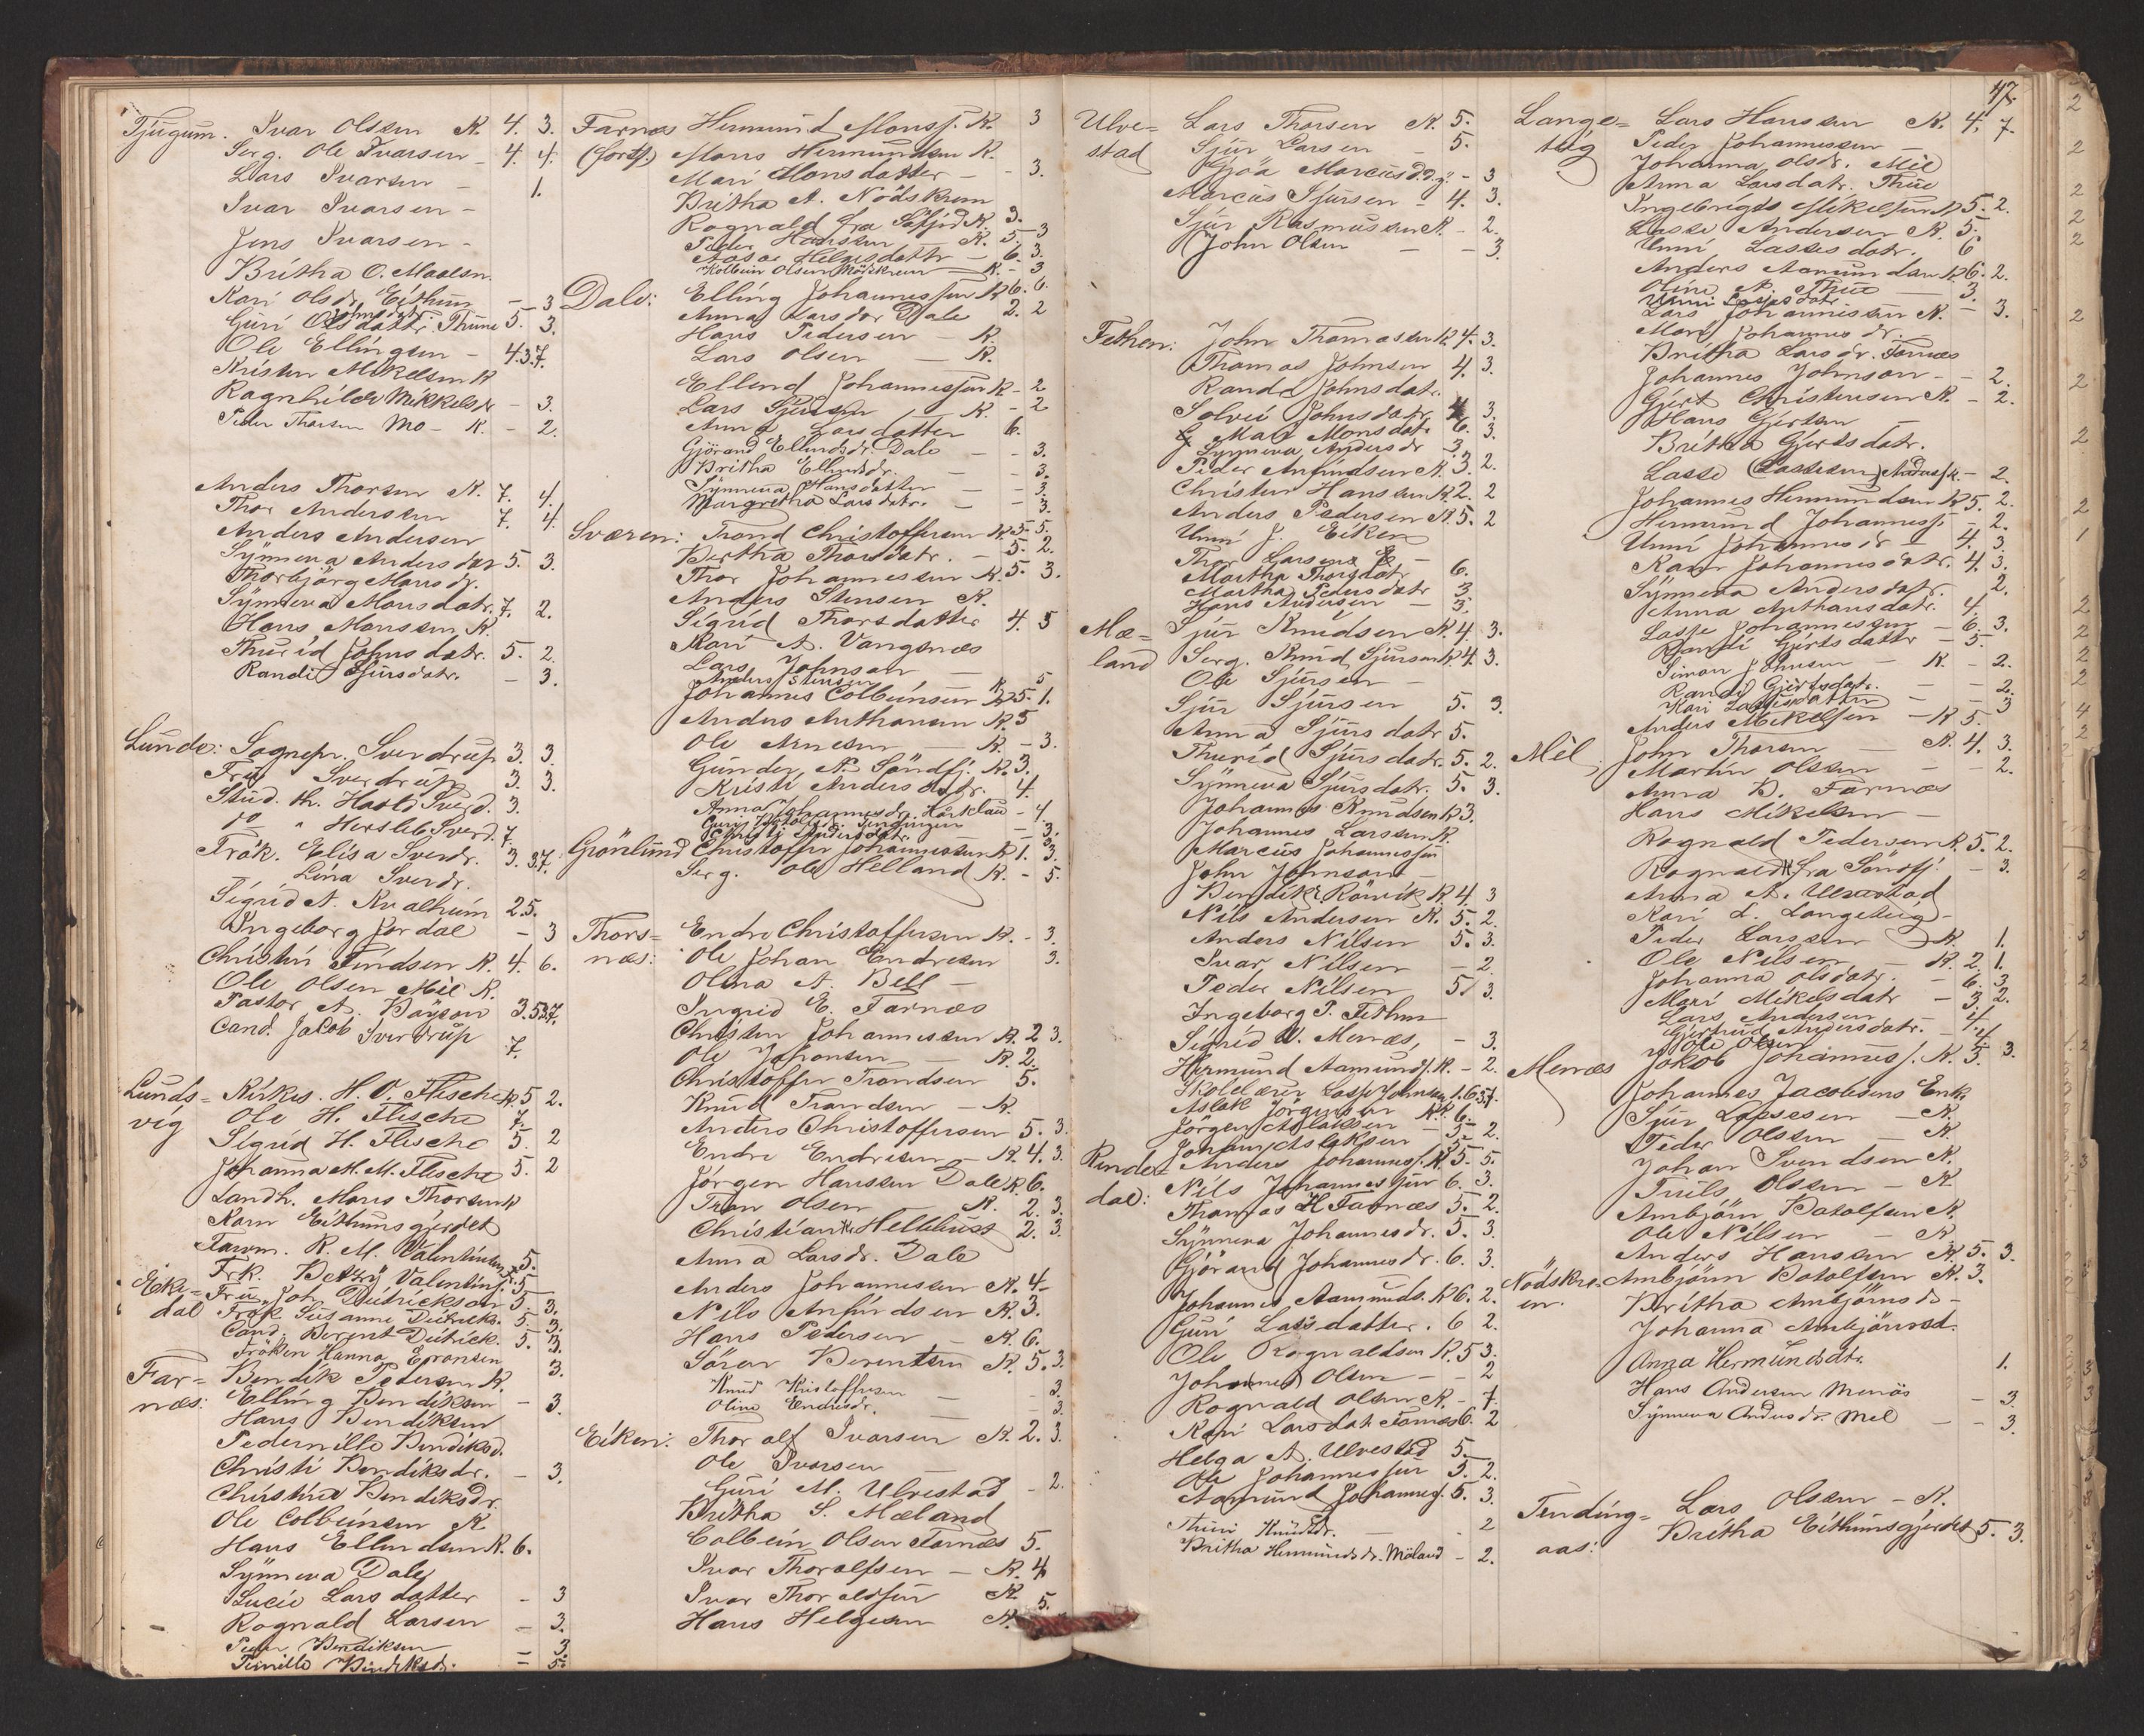 Tjugum. Ivar Olssen K. 4. 3.
Serg. Ole Ivarsen - 4. 4.
Lars Ivarsen - 1.
Ivar Ivarsen -
Jens Ivarsen -
Britha O.
Kari Olsdr. Eithun - 3
Guri Thune 5. 3.
Ole Ellingsen - 4.3.7.
Kristen Mikelsen K
Ragnhilde Mikkelsdr - 3.
Peder Thorsen Mo - K. - 2.
Anders Thorsen K. 7. 4.
Thor Anderssen 7. 4.
Anders Andersen
Synneva Andersdar 5. 3.
Thorbjörg Monsdr.
Synneva Monsdatr. 7. 2.
Hans Monssen K.
Thurid Johnsdatr. 5. 2.
Randi Sjursdatr. - 3.
Lunde: Sognepr. Sverdrup 3. 3.
Fru Sverdrup 3. 3.
Stud. th. Harald Sverd. 3.
do " Hersleb Sverd. 7.
Frök. Elisa Sverdr. 3. 3.7.
Lina Sverdr.
Sigrid A. Kvalheim 2.5.
Ingeborg Jordal - 3
Christen Findsen K. 4. 6.
Ole Olsen Mel K.
Pastor A. Böyson 3.5.3.7.
Cand. Jacob Sverdrup 7.
Lunds= Kirkes. H. O. Flesche K. 5 2.
vig Ole H. Flesche 7.
Sigrid H. Flesche 5. 2
Johanna M. M. Flesche 5. 2
Landh. Mons Thorsen K
Karn Eithunsgjerdet
R. M. Valentinsen 5.
Frk. Betzy Valentins. 5
Eike= Fru Joh. Deitrickson 5. 3.
dal Frök. Susanne Deitricks. 5. 3.
Cand. Berent Deitrick. 5. 3.
Fröken Hanna 3.
Far= Bendik Pedersen K.
næs: Elling Bendiksen - 3.
Hans Bendiksen
Pedernille Bendiksd.
Christi Bendiksdr. - 3.
Christine Bendiksdr.
Ole Colbeinsen K
Hans Ellendsen K. 6.
Synneva Dale
Lucie Larsdatter - 3
Rognald Larsen - 3.
Bendiksen - 3.
Pernille Bendiksdr. - 5.
Farnæs Hermund Monss. K. 3
(forts.) Mons Hermundsen K.
Mari Monsdatter - - 3.
Britha A. Nödskrem
Rognald fra K. 3.
Peder Hanssen - K. 5. 3
Aasae Helgesdattr - 6. 3.
Kolbein Olsen Nödskrem - K. - 3
Dale: Elling Johannessen K 6. 6.
Anna Larsdor Dale 2. 2
Hans Pedersen - K.
Lars Olsen - K.
Ellend Johannessen K - 2
Lars Sjursen - K. - 2
Anna Larsdatter 6.
Gjörand Ellendsdr. Dale - - 3.
Britha Ellendsdr. - - 3.
Synneva Hansdatter - - 3.
Margretha Larsdatr. - - 3.
Sværen: Trond Christoffersen K. 5. 5.
Bertha Thorsdatr. - 5. 2.
Thor Johannessen K. 5. 3.
Anders Stensen K.
Sigrid Thorsdatter 4. 5
Kari A. Vangsnæs
Lars Johnson -
Anders Stensen - K 5
Johannes Colbeinsen K 5. 1.
Anders Anthonsen K. 5
Ole Arnesen - K. - 3.
Gunder N. Söndfj. K. 3.
Kristi Andersdatr. 4.
Anna Johannesdr. - 4.
Guri - 3.
Christi Andersdatr. - 3
Grönlund Christoffer Johannessen K 1. 3.
Serg. Ole Helland K. - 5.
Thors= Endre Christoffersen K. - 3.
næs: Ole Johan Endresen 3.
Olina A. Bell -
Ingrid E. Farnæs
Christen Johannessen K. 2 3.
Ole Johansen - K. 2.
Christoffer Trondsen 5.
Knud Trondsen - K.
Anders Christoffersen 5. 3.
Endre Endresen - K. 4. 3.
Jörgen Hanssen Dale K 6.
Tron Olsen K. 2. 3.
Christian Hellebust 2. 3.
Anna Larsdr. Dale
Anders Johannessen K. 4-
Nils Anfindsen K. 3.
Hans Pedersen - K. 6.
Sören Berentsen K. 5. 3.
Knud Kristoffersen - 3.
Oline Endresdr. - 3.
Eiken: Thoralf Ivarsen K. 2. 3.
Ole Ivarsen -
Guri M. Ulvestad - 2.
Britha S. Mæland
Colbein Olsen Farnæs 5.
Ivar Thoralfsen - K. 4
Ivar Thoraldsen K
Hans Helgesen K. 5.
47.
Ulve= Lars Thorsen K. 5.
stad Sjur Larsen - 5.
Gjöa Marcusd. - 3
Marcus Sjursen - 4. 3.
Sjur Rasmussen K - 2.
John Olsen - - 3.
Fethen: John Thomassen K 4. 3.
Thomas Johnsen 4. 3.
Randi Johnsdatr.
Solvei Johnsdatr 3.
Mar Monsdatr 6. 3.
Synneva Andersdr 3.
Peder Anfindsen K. 3. 2.
Christen Hanssen K 2. 2
Anders Pedersen K. 5. 2
Unni J. Eiken
Thor Larsen -
Martha Thorsdatr 6.
Martha Pedersdatr 3
Hans Andersen - 3.
Mæ= Sjur Knudsen K. 4. 3.
land Serg. Knud Sjursen K 4. 3.
Ole Sjursen -
Sjur Sjursen 5. 3.
Anna Sjursdatr 5.
Thurid Sjursdatr. 5. 2.
Synneva Sjursdatr. 5. 3.
Johannes Knudsen K 3.
Johannes Larssen K.
Marcus Johannessen
John Johnson -
Bendik Rönvik K. 4. 3
Nils Andersen K. 5. 2.
Anders Nilsen 5. 3.
Ivar Nilsen - 2.
Peder Nilsen 5/ 3.
Ingeborg P. Fethen
Sigrid U. Menæs, - 3.
Hermund Aamunds. K. - 2.
Skolelærer Lasse Johnsen 1.6 3.7.
Aslak Jörgensen K. 6.
Jörgen Aslaksen - 5 2.
Johan Aslaksen 5
Rinde= Anders Johanness. K. 5. 5.
dal: Nils Johannessen 6. 3.
Thomas H Farnæs 5. 2.
Synneva Johannesdr. 5. 3.
Gjörand Johannesdr. 6. 3.
Johannes Aamunds. K 6. 2.
Guri Larsdatter. 6 2.
Ole Rognaldsen K. 5 3.
Johannes Olsen - - 2
Rognald Olsen K. - 7
Kari Larsdatr Farnæs 6. 2
Helga A. Ulvestad 5.
Ole Johannessen 5. 2.
Aamund Johanness. 5. 3.
Knudsdr. - - 2
Britha Hermundsdr. Mæland - 2.
Lange= Lars Hanssen K. 4. 7.
teig Peder Johannessen -
Johanna Olsdr. Mel
Anna Larsdatr. Thue
Ingebrigt Mikelsen K 5. 2.
Lasse Andersen K. 5.
Unni Lassesdatr. 6
Anders Aamundsen K 6. 2.
Oline A. Thue - 3.
Unni Lassesdatr.
Lars Johannessen K. - 3.
Mari Johannesdr. -
Britha Larsdr. Farnæs
Johannes Johnson - - 2.
Gjert Christensen K. - 2.
Hans Gjertsen -
Britha Gjertsdatr.
Lasse (Lassesen) Anderss K. - 2.
Johannes Hermundsen K 5. 2.
Hermund Johanness. - 2.
Unni Johannesdr - 4. 3.
Kari Johannesdatr. 4. 3.
Synneva Andersdatr. 2.
Anna Anthansdatr. 4.
Lasse Johannessen - 6. 3.
Randi Gjertsdattr - 5.
Simon Johnsen - K. - 2.
Randi Gjertsdatr. - - 2.
Kari Lassesdatter - 3
Anders Mikelsen - K 5.
Mel, John Thorsen - K. 4. 3.
Martin Olssen - - 2.
Anna B. Farnæs
Hans Mikelsen -
Rognald Pedersen K. 5. 2.
Rognald fra Söndfj. - 3.
Anna A. Ulvestad
Kari L. Langeteig -
Peder Larssen K. 1.
Ole Nilsen - K. 2. 1.
Johanna Olsdatr. - 6. 3.
Mari Mikelsdatr - 3 2.
Lars Andersen - 4.
Gjertrud Andersdatr. - 4.
Ole Olsen 4
Menæs Jakob Johanness. K. 5. 3.
Johannes Jacobsens Enk.
Sjur Lassesen - K.
Peder Olssen - K
Johan Svendsen K.
Truls Olssen - K
Ambjörn Botolfsen K.
Ole Nilsen - K
Anders Hanssen K. 5. 3.
Nödskre= Ambjörn Botolfsen K. 3.
en. Britha Ambjörnsd -
Johanna Ambjörnsd.
Anna Hermundsdtr. 1.
Hans Andersen Menös - 3.
Synneva Andersdr. Mel - - 3.
Tending= Lars Olssen - K.
aas: Britha Eithunsgjerdet 5. 3.